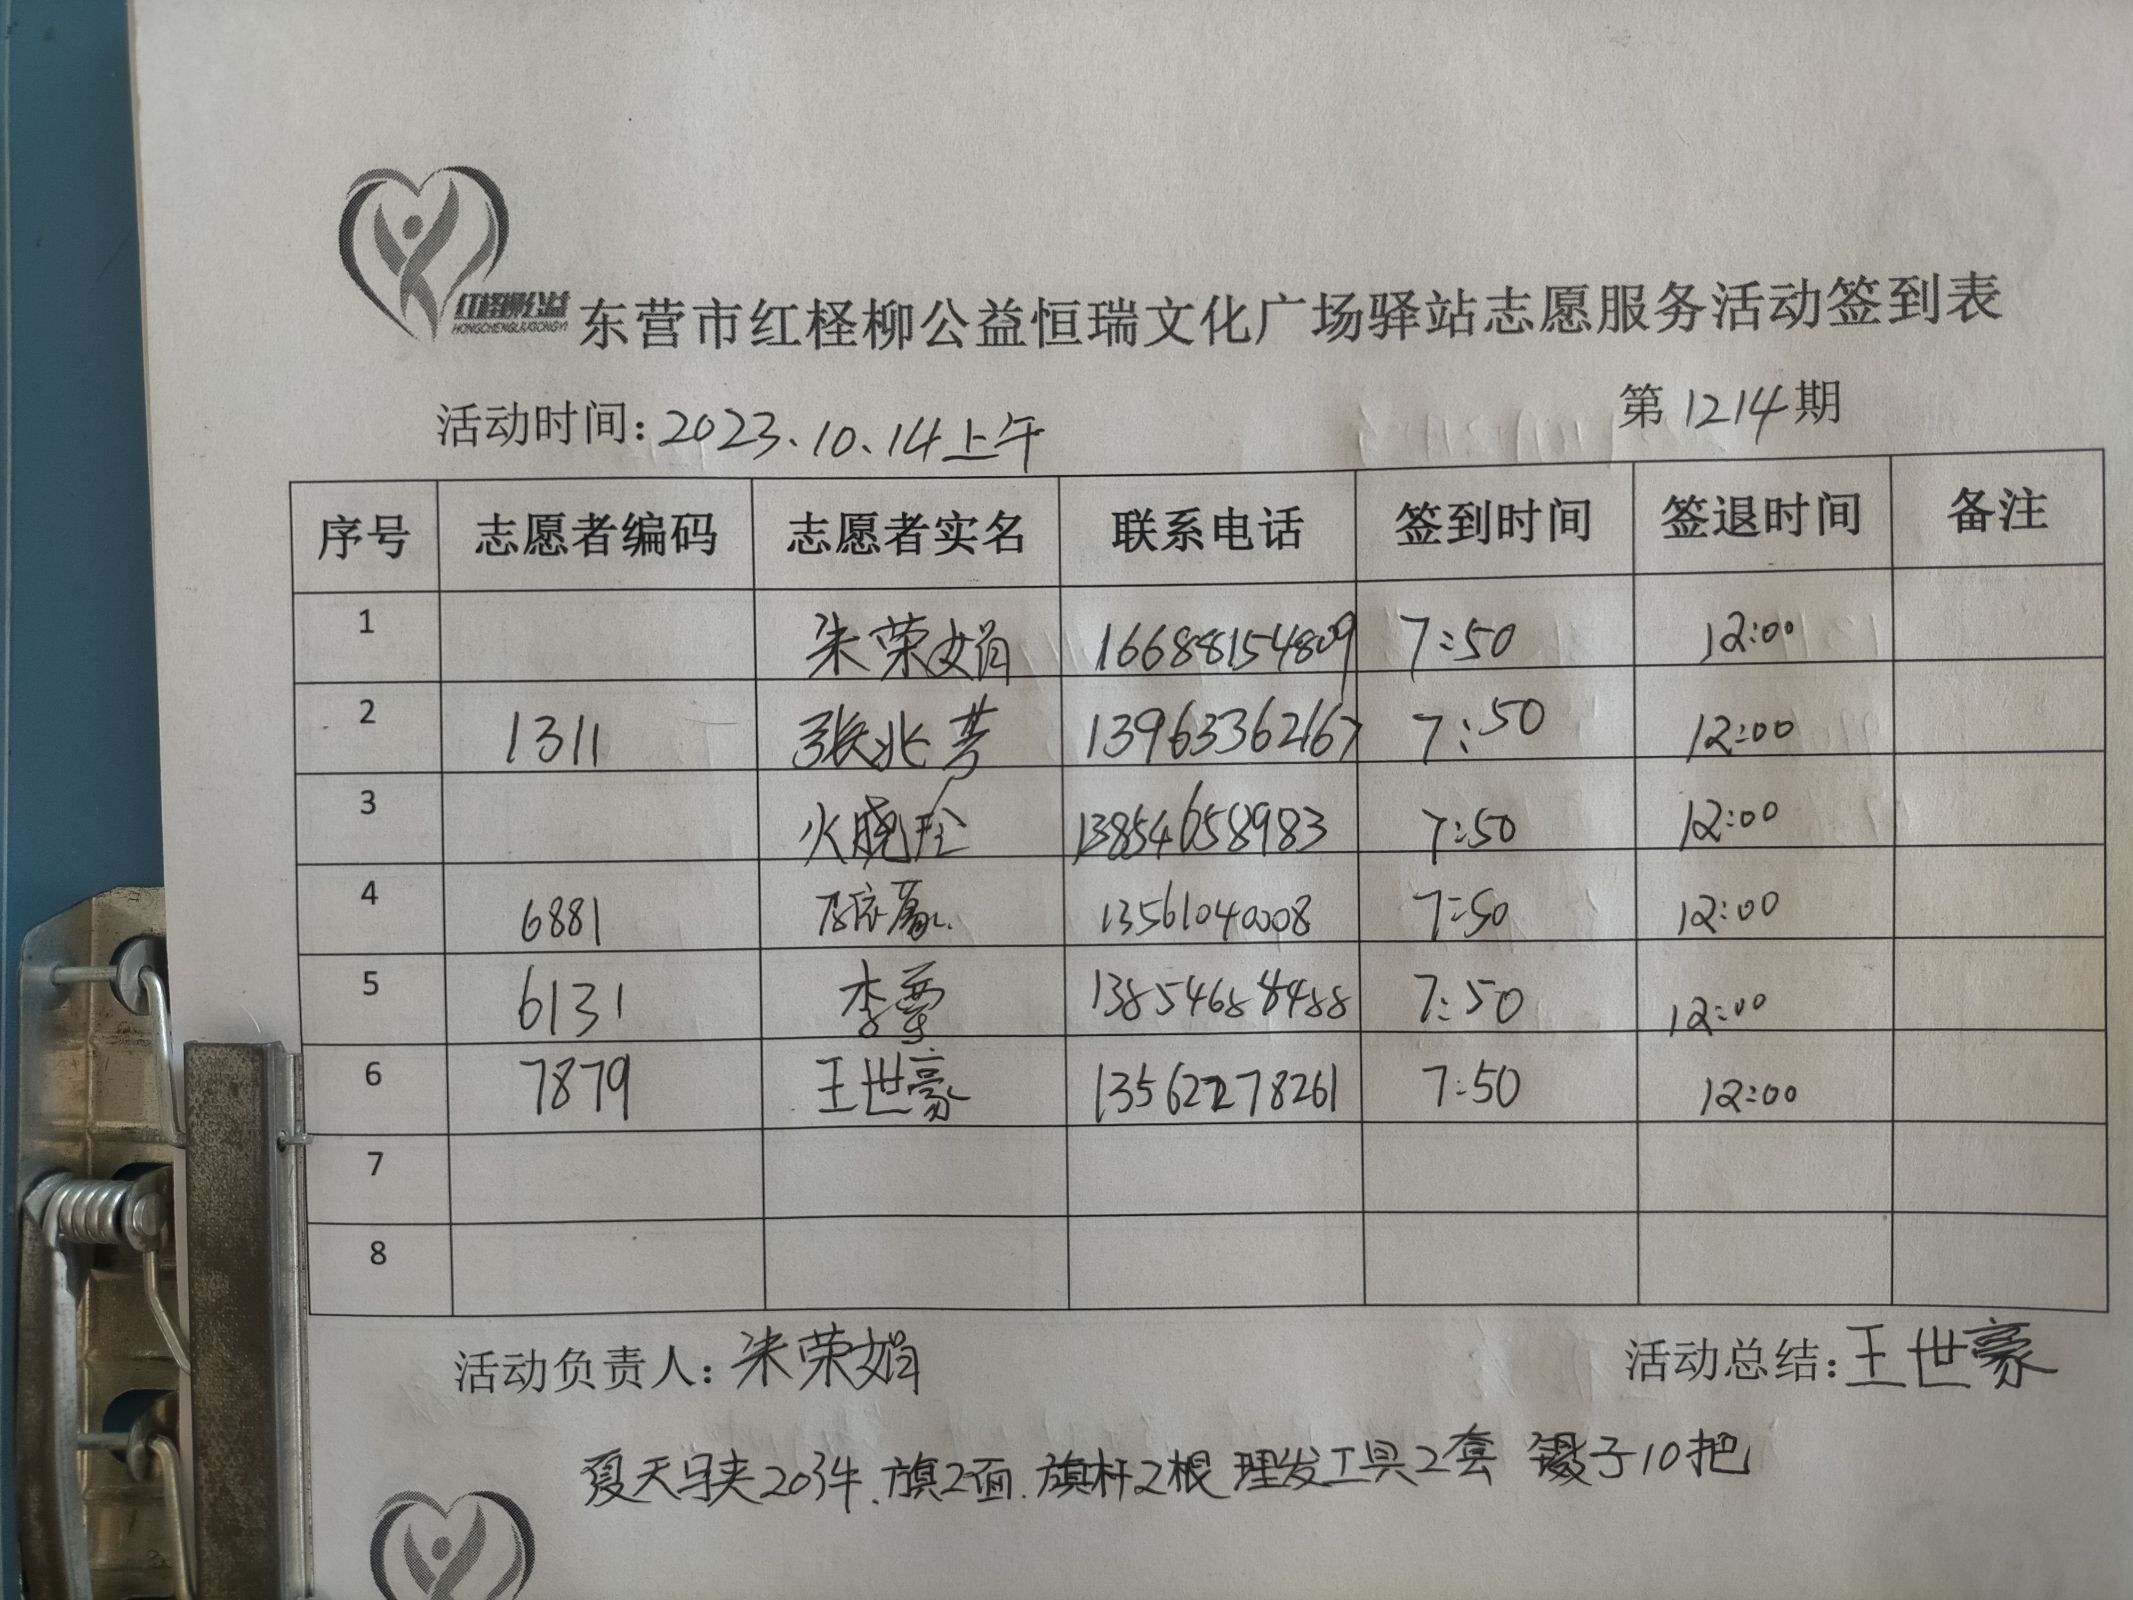 红柽柳公益
HONGCHENGLIUGONGYI
东营市红柽柳公益恒瑞文化广场驿站志愿服务活动签到表
活动时间：2023.10.14上午 第1214期
序号 志愿者编码 志愿者实名 联系电话 签到时间 签退时间 备注
1 朱荣娟 16688154809 7:50 12:00
2 1311 张兆芳 13963362167 7:50 12:00
3 火晓 13854658983 7:50 12:00
4 6881 13561040008 7:50 12:00
5 6131 李 13854688488 7:50 12:00
6 7879 王世豪 13562278261 7:50 12:00
7
8
活动负责人：朱荣娟 活动总结：王世豪
夏天马夹20件.旗2面.旗杆2根 理发工具2套 镊子10把